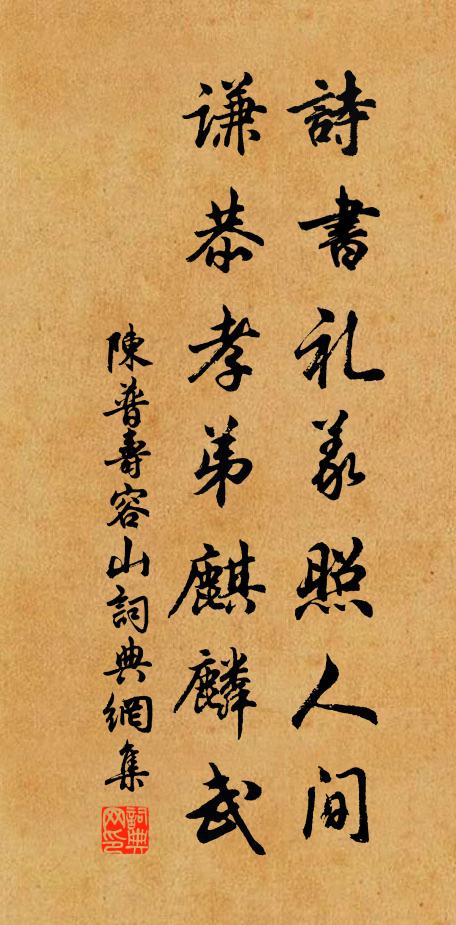 詩書礼義照人间
谦恭孝弟麒麟武
陳普壽容山詞典網集
詞典网印